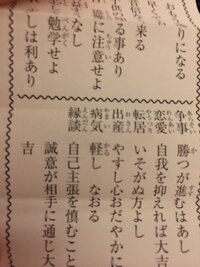 りになる
来る
る事あり
に注意せよ
なし
勉学せよ
しは利あり
争事 勝つが進むはあし
恋愛 自我を抑えれば大吉
転居 いそがぬ方よし
出産 やすし心おだやかに
病気 軽し なおる
縁談 自己主張を慎むこと
誠意が相手に通じ大
吉